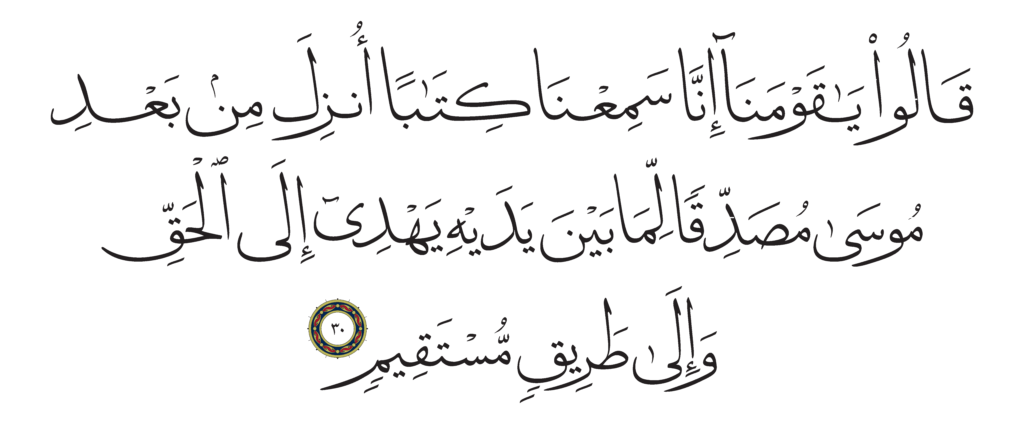 قَالُوا۟ يَـٰقَوْمَنَآ إِنَّا سَمِعْنَا كِتَـٰبًا أُنزِلَ مِنۢ بَعْدِ
مُوسَىٰ مُصَدِّقًا لِّمَا بَيْنَ يَدَيْهِ يَهْدِىٓ إِلَى ٱلْحَقِّ
وَإِلَىٰ طَرِيقٍ مُّسْتَقِيمٍ ٣٠